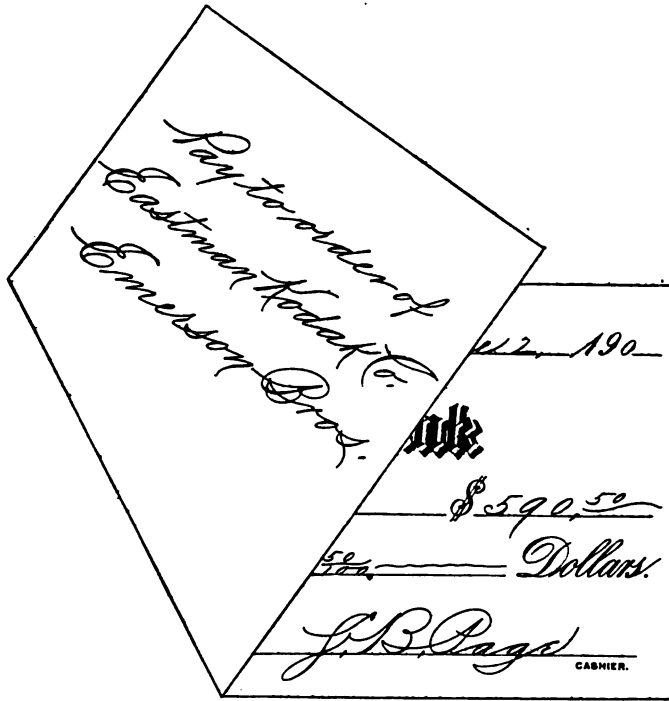 Pay to order of
Eastman Kodak Co.
Emerson Bros.
2, 190
$ 590, 50
50/100. Dollars.
J. B. Page
CASHIER.